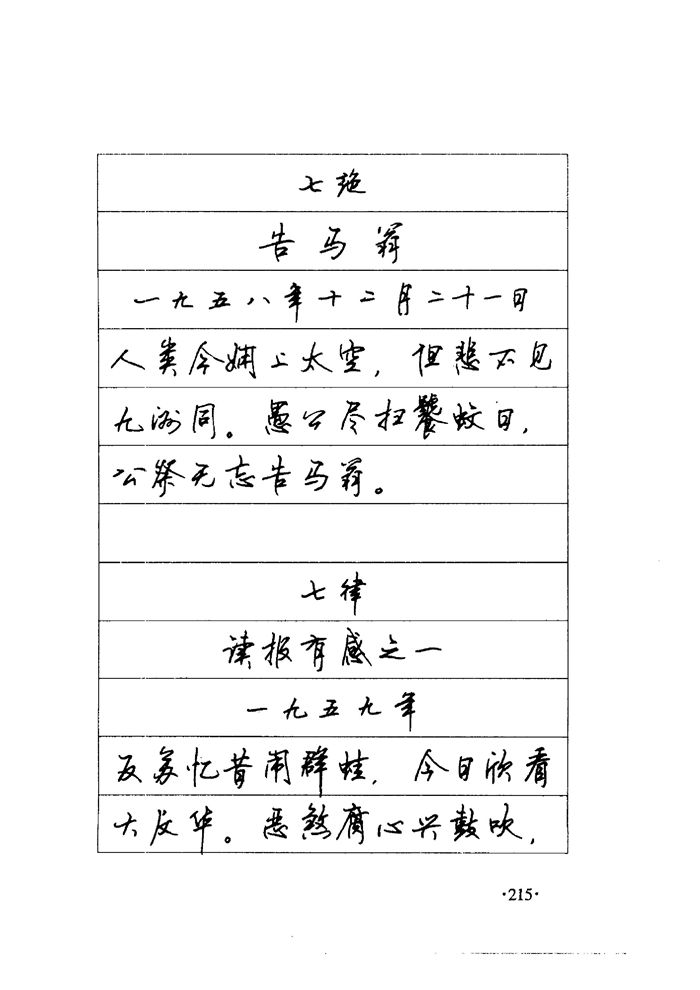 七绝
告马翁
一九五八年十二月二十一日
人类今娴上太空，但悲不见
九洲同。愚公尽扫饕蚊日，
公祭无忘告马翁。
七律
读报有感之一
一九五九年
反苏忆昔闹群蛙，今日欣看
大反华。恶煞腐心兴鼓吹，
·215·